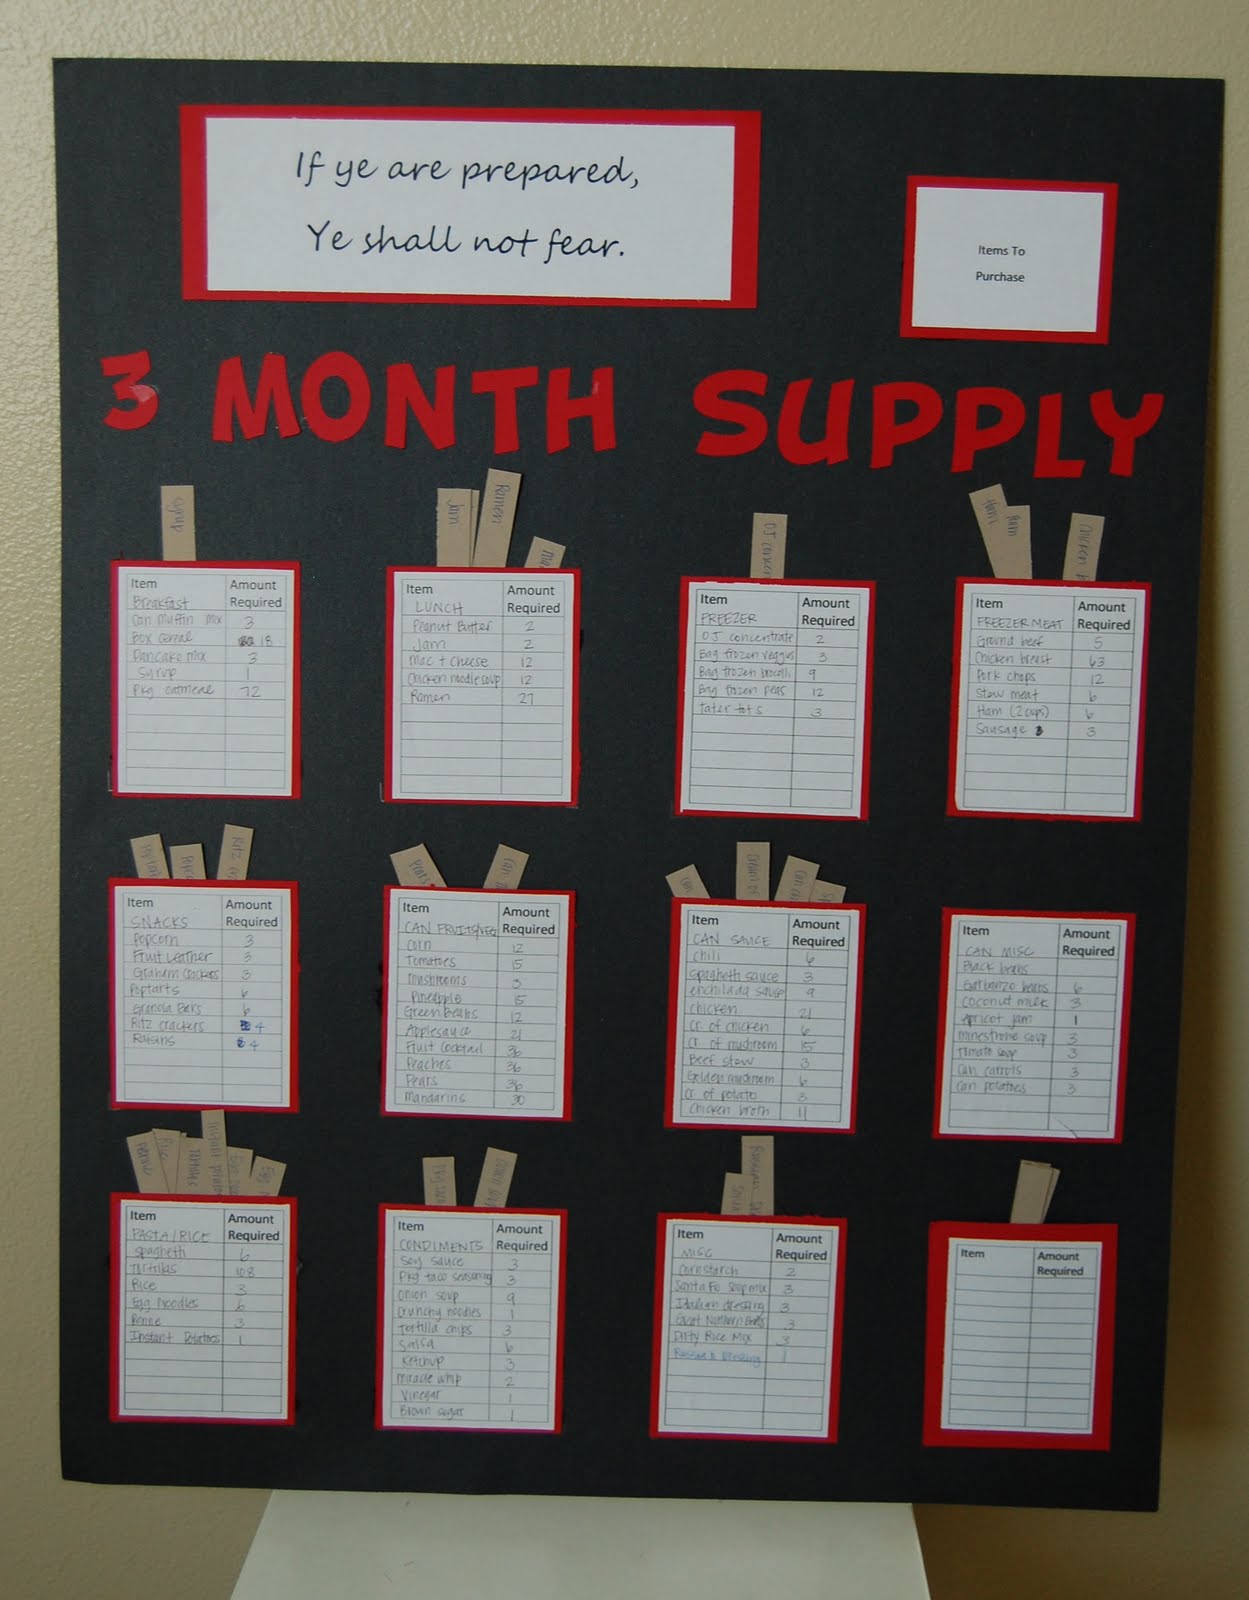 If ye are prepared,
Ye shall not fear.
Items To
Purchase
3 MONTH SUPPLY
Syrup
Jam
Ramen
Ham
Ham
Chicken
Item Amount
Breakfast Required
Can Muffin Mix 3
Box cereal 18
Pancake mix 3
Syrup 1
Pkg oatmeal 72
Item Amount
LUNCH Required
Peanut Butter 2
Jam 2
Mac + Cheese 12
Chicken noodle soup 12
Ramen 27
Item Amount
FREEZER Required
OJ concentrate 2
Bag frozen veggies 3
Bag frozen brocolli 9
Bag frozen peas 12
Tater tots 3
Item Amount
FREEZER MEAT Required
Ground beef 5
Chicken breast 63
Pork chops 12
Stew meat 6
Ham (2 cups) 6
Sausage 3
Ritz
Pears
Can
Item Amount
SNACKS Required
Popcorn 3
Fruit Leather 3
Graham Crackers 3
Poptarts 6
Granola Bars 6
Ritz crackers 4
Raisins 4
Item Amount
CAN FRUITS/VEG Required
Corn 12
Tomatoes 15
Mushrooms 3
Pineapple 15
Green Beans 12
Applesauce 21
Fruit Cocktail 36
Peaches 36
Pears 36
Mandarins 30
Item Amount
CAN SAUCE Required
Chili 6
Spaghetti sauce 3
enchilada sauce 9
chicken 21
Cr. of chicken 6
Cr. of mushroom 15
Beef stew 3
Golden mushroom 6
Cr. of potato 3
Chicken broth 11
Item Amount
CAN MISC Required
Black beans
Garbanzo beans 6
Coconut milk 3
Apricot jam 1
minestrone soup 3
Tomato soup 3
Can carrots 3
Can potatoes 3
Penne
Rice
Tortillas
Instant potatoes
Egg
Item Amount
PASTA/RICE Required
Spaghetti 6
Tortillas 108
Rice 3
Egg Noodles 6
Penne 3
Instant Potatoes 1
Item Amount
CONDIMENTS Required
Soy sauce 3
Pkg taco seasoning 3
Onion soup 9
Crunchy noodles 1
Tortilla chips 3
Salsa 6
Ketchup 3
Miracle whip 2
Vinegar 1
Brown sugar 1
Item Amount
MISC Required
Cornstarch 2
Santa Fe soup mix 3
Italian dressing 3
Great Northern Beans 3
Dirty Rice Mix 3
Russian Dressing 1
Item Amount
Required